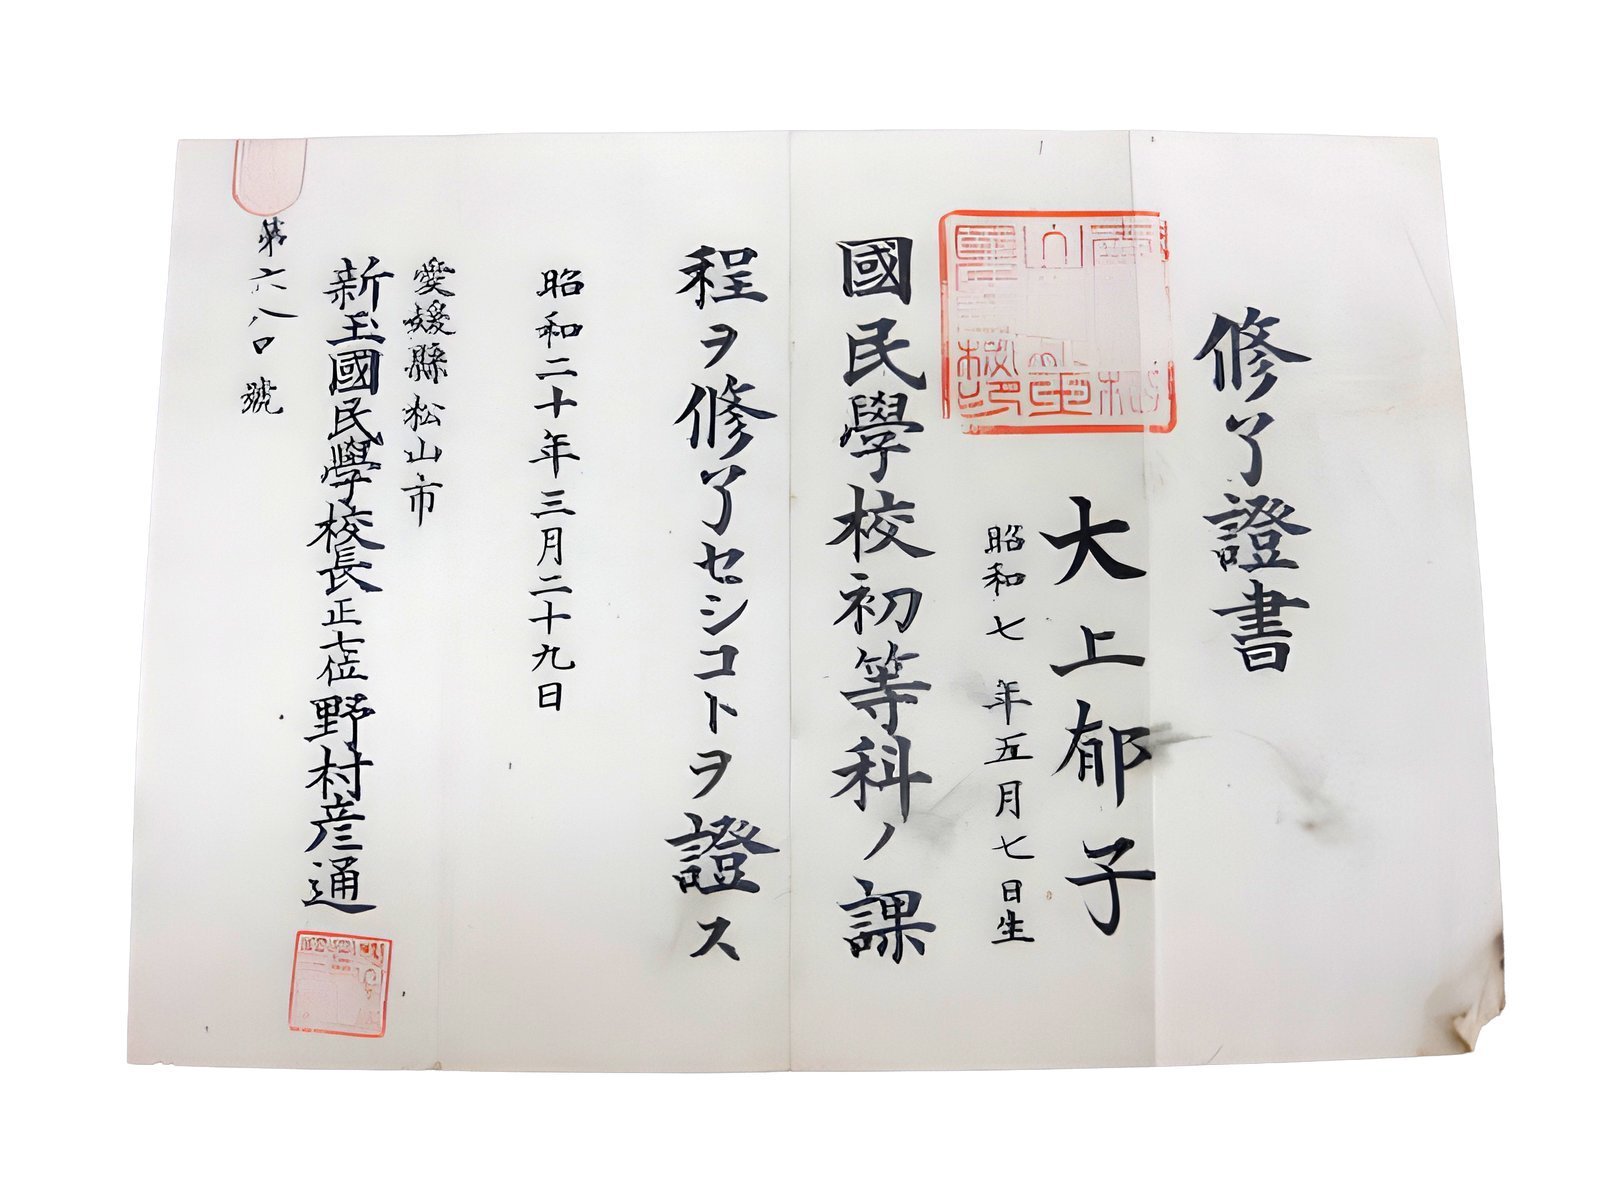 修了證書
大上郁子
昭和七年五月七日生
國民學校初等科ノ課
程ヲ修了セシコトヲ證ス
昭和二十年三月二十九日
愛媛縣松山市
新玉國民學校長正七位野村彦通
第六八〇號